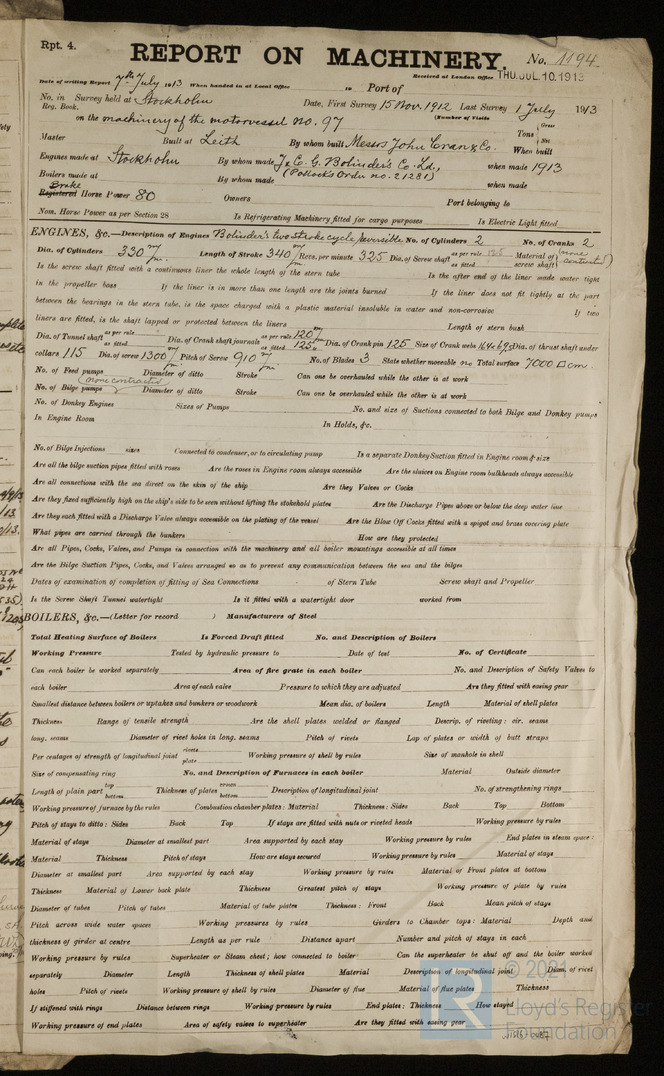 Rpt. 4.
REPORT ON MACHINERY. No. 1194.
Date of writing Report 7th July 1913 When handed in at Local Office 10 Port of Received at London Office THU. JUL. 10. 1913
No. in Reg. Book. Survey held at Stockholm Date, First Survey 15 Nov. 1912 Last Survey 1 July 1913
on the machinery of the motorvessel no. 97 (Number of Visits
Tons { Gross Net
Master Built at Leith By whom built Messrs John Cran & Co. When built
Engines made at Stockholm By whom made J. & C. G. Bolinder's Co. Ld., when made 1913
(Pollock's Order no. 21281)
Boilers made at By whom made when made
Brake
Registered Horse Power 80 Owners Port belonging to
Nom. Horse Power as per Section 28 Is Refrigerating Machinery fitted for cargo purposes Is Electric Light fitted
ENGINES, &c.—Description of Engines Bolinder's two stroke cycle reversible No. of Cylinders 2 No. of Cranks 2
Dia. of Cylinders 330 m/m. Length of Stroke 340 m/m. Revs. per minute 325 Dia. of Screw shaft as per rule as fitted Material of screw shaft
Is the screw shaft fitted with a continuous liner the whole length of the stern tube Is the after end of the liner made water tight
in the propeller boss If the liner is in more than one length are the joints burned If the liner does not fit tightly at the part
between the bearings in the stern tube, is the space charged with a plastic material insoluble in water and non-corrosive If two
liners are fitted, is the shaft lapped or protected between the liners Length of stern bush
Dia. of Tunnel shaft as per rule as fitted Dia. of Crank shaft journals as per rule 120 m/m as fitted 125 Dia. of Crank pin 125 Size of Crank webs Dia. of thrust shaft under
collars 115 Dia. of screw 1300 m/m. Pitch of Screw 910 m/m No. of Blades 3 State whether moveable no Total surface 7000 □cm.
No. of Feed pumps Diameter of ditto Stroke Can one be overhauled while the other is at work
(none contracted)
No. of Bilge pumps Diameter of ditto Stroke Can one be overhauled while the other is at work
No. of Donkey Engines Sizes of Pumps No. and size of Suctions connected to both Bilge and Donkey pumps
In Engine Room In Holds, &c.
No. of Bilge Injections sizes Connected to condenser, or to circulating pump Is a separate Donkey Suction fitted in Engine room & size
Are all the bilge suction pipes fitted with roses Are the roses in Engine room always accessible Are the sluices on Engine room bulkheads always accessible
Are all connections with the sea direct on the skin of the ship Are they Valves or Cocks
Are they fixed sufficiently high on the ship's side to be seen without lifting the stokehold plates Are the Discharge Pipes above or below the deep water line
Are they each fitted with a Discharge Valve always accessible on the plating of the vessel Are the Blow Off Cocks fitted with a spigot and brass covering plate
What pipes are carried through the bunkers How are they protected
Are all Pipes, Cocks, Valves, and Pumps in connection with the machinery and all boiler mountings accessible at all times
Are the Bilge Suction Pipes, Cocks, and Valves arranged so as to prevent any communication between the sea and the bilges
Dates of examination of completion of fitting of Sea Connections of Stern Tube Screw shaft and Propeller
Is the Screw Shaft Tunnel watertight Is it fitted with a watertight door worked from
BOILERS, &c.—(Letter for record ) Manufacturers of Steel
Total Heating Surface of Boilers Is Forced Draft fitted No. and Description of Boilers
Working Pressure Tested by hydraulic pressure to Date of test No. of Certificate
Can each boiler be worked separately Area of fire grate in each boiler No. and Description of Safety Valves to
each boiler Area of each valve Pressure to which they are adjusted Are they fitted with easing gear
Smallest distance between boilers or uptakes and bunkers or woodwork Mean dia. of boilers Length Material of shell plates
Thickness Range of tensile strength Are the shell plates welded or flanged Descrip. of riveting: cir. seams
long. seams Diameter of rivet holes in long. seams Pitch of rivets Lap of plates or width of butt straps
Per centages of strength of longitudinal joint rivets plate Working pressure of shell by rules Size of manhole in shell
Size of compensating ring No. and Description of Furnaces in each boiler Material Outside diameter
Length of plain part top bottom Thickness of plates crown bottom Description of longitudinal joint No. of strengthening rings
Working pressure of furnace by the rules Combustion chamber plates: Material Thickness: Sides Back Top Bottom
Pitch of stays to ditto: Sides Back Top If stays are fitted with nuts or riveted heads Working pressure by rules
Material of stays Diameter at smallest part Area supported by each stay Working pressure by rules End plates in steam space:
Material Thickness Pitch of stays How are stays secured Working pressure by rules Material of stays
Diameter at smallest part Area supported by each stay Working pressure by rules Material of Front plates at bottom
Thickness Material of Lower back plate Thickness Greatest pitch of stays Working pressure of plate by rules
Diameter of tubes Pitch of tubes Material of tube plates Thickness: Front Back Mean pitch of stays
Pitch across wide water spaces Working pressures by rules Girders to Chamber tops: Material Depth and
thickness of girder at centre Length as per rule Distance apart Number and pitch of stays in each
Working pressure by rules Superheater or Steam chest; how connected to boiler Can the superheater be shut off and the boiler worked
separately Diameter Length Thickness of shell plates Material Description of longitudinal joint Diam. of rivet
holes Pitch of rivets Working pressure of shell by rules Diameter of flue Material of flue plates Thickness
If stiffened with rings Distance between rings Working pressure by rules End plates: Thickness How stayed
Working pressure of end plates Area of safety valves to superheater Are they fitted with easing gear
© 2021
Lloyd's Register
Foundation